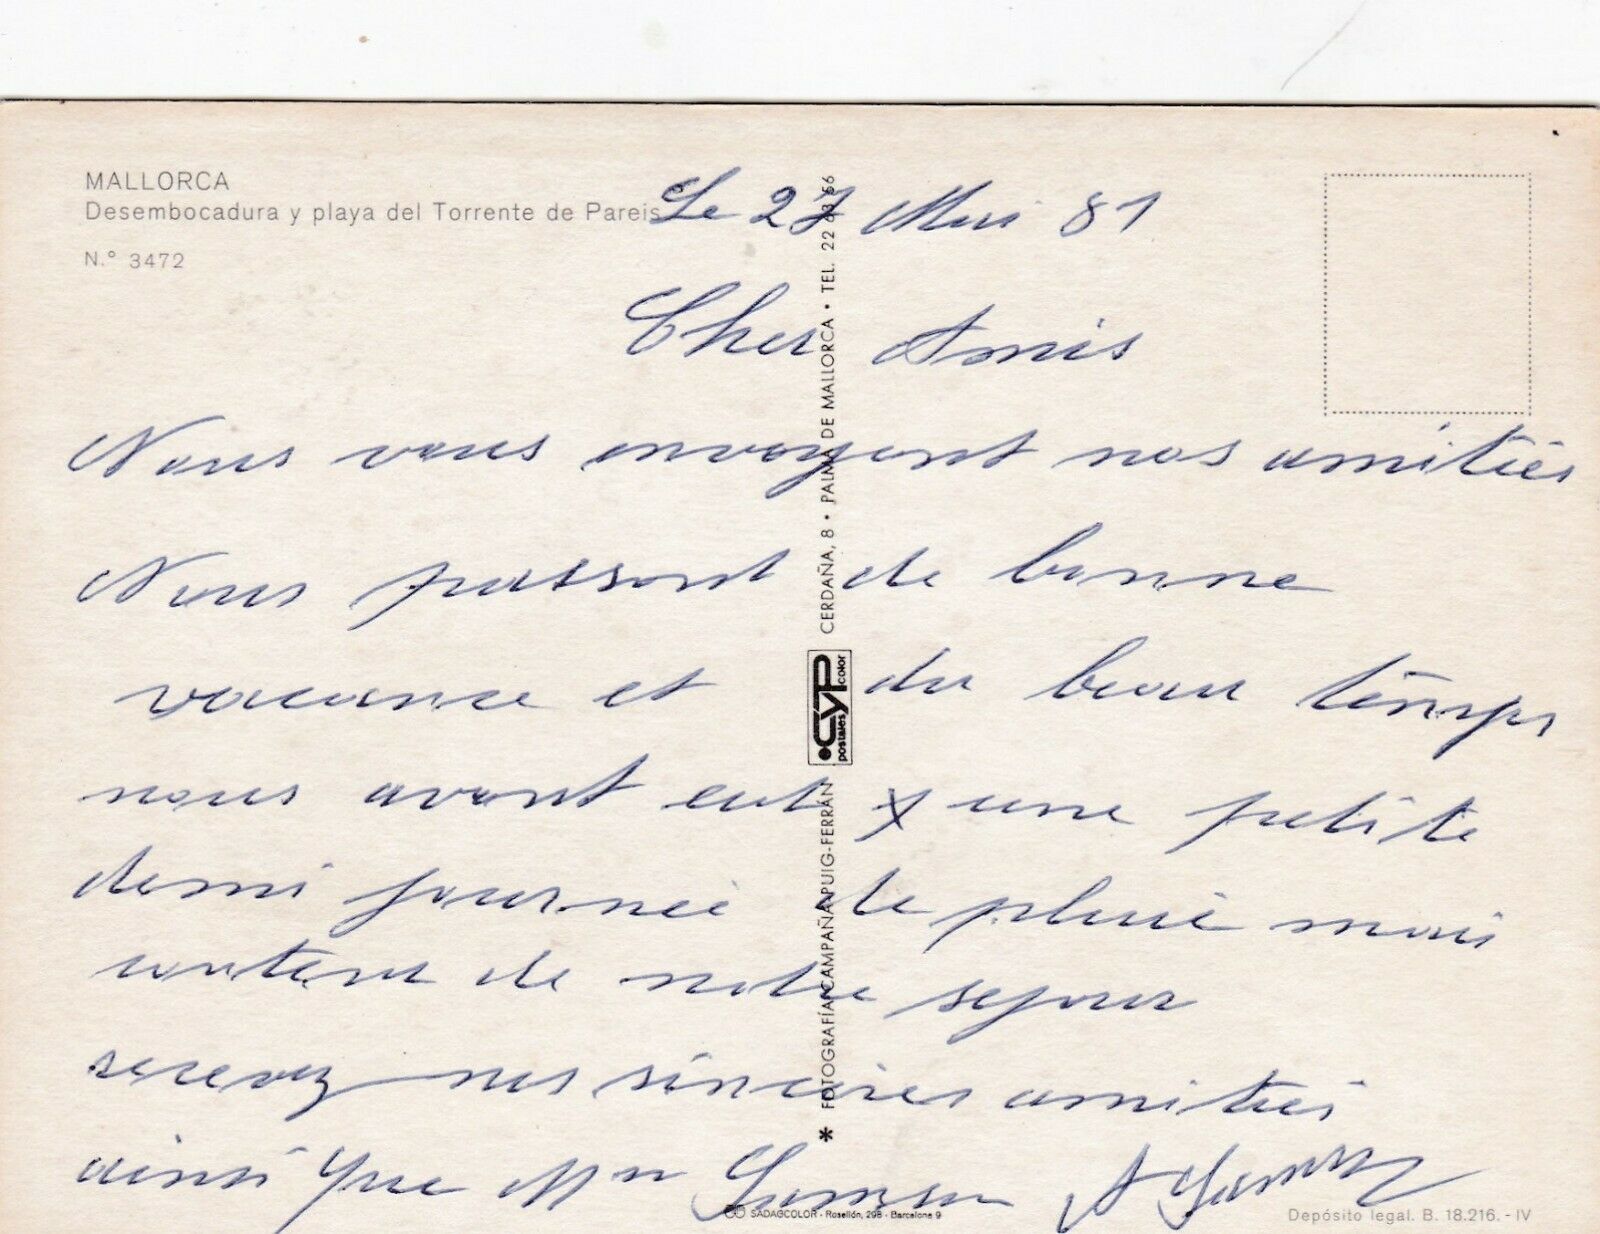 MALLORCA
Desembocadura y playa del Torrente de Pareis
N.° 3472
Le 27 Mai 81
Cher Amis
Nous vous envoyont nos amitiés
Nous passont de bonne
vacance et du beau temps
nous avont eut une petite
demi journeé de pluie mais
content de notre sejour
recevez nos sincères amitiés
ainsi que Mr
* FOTOGRAFÍA CAMPAÑÁ PUIG-FERRÁN
CYP
postales color
CERDAÑA, 8 • PALMA DE MALLORCA • TEL. 22 63 56
SADAGCOLOR - Rosellón, 298 - Barcelona 9
Depósito legal. B. 18.216. - IV